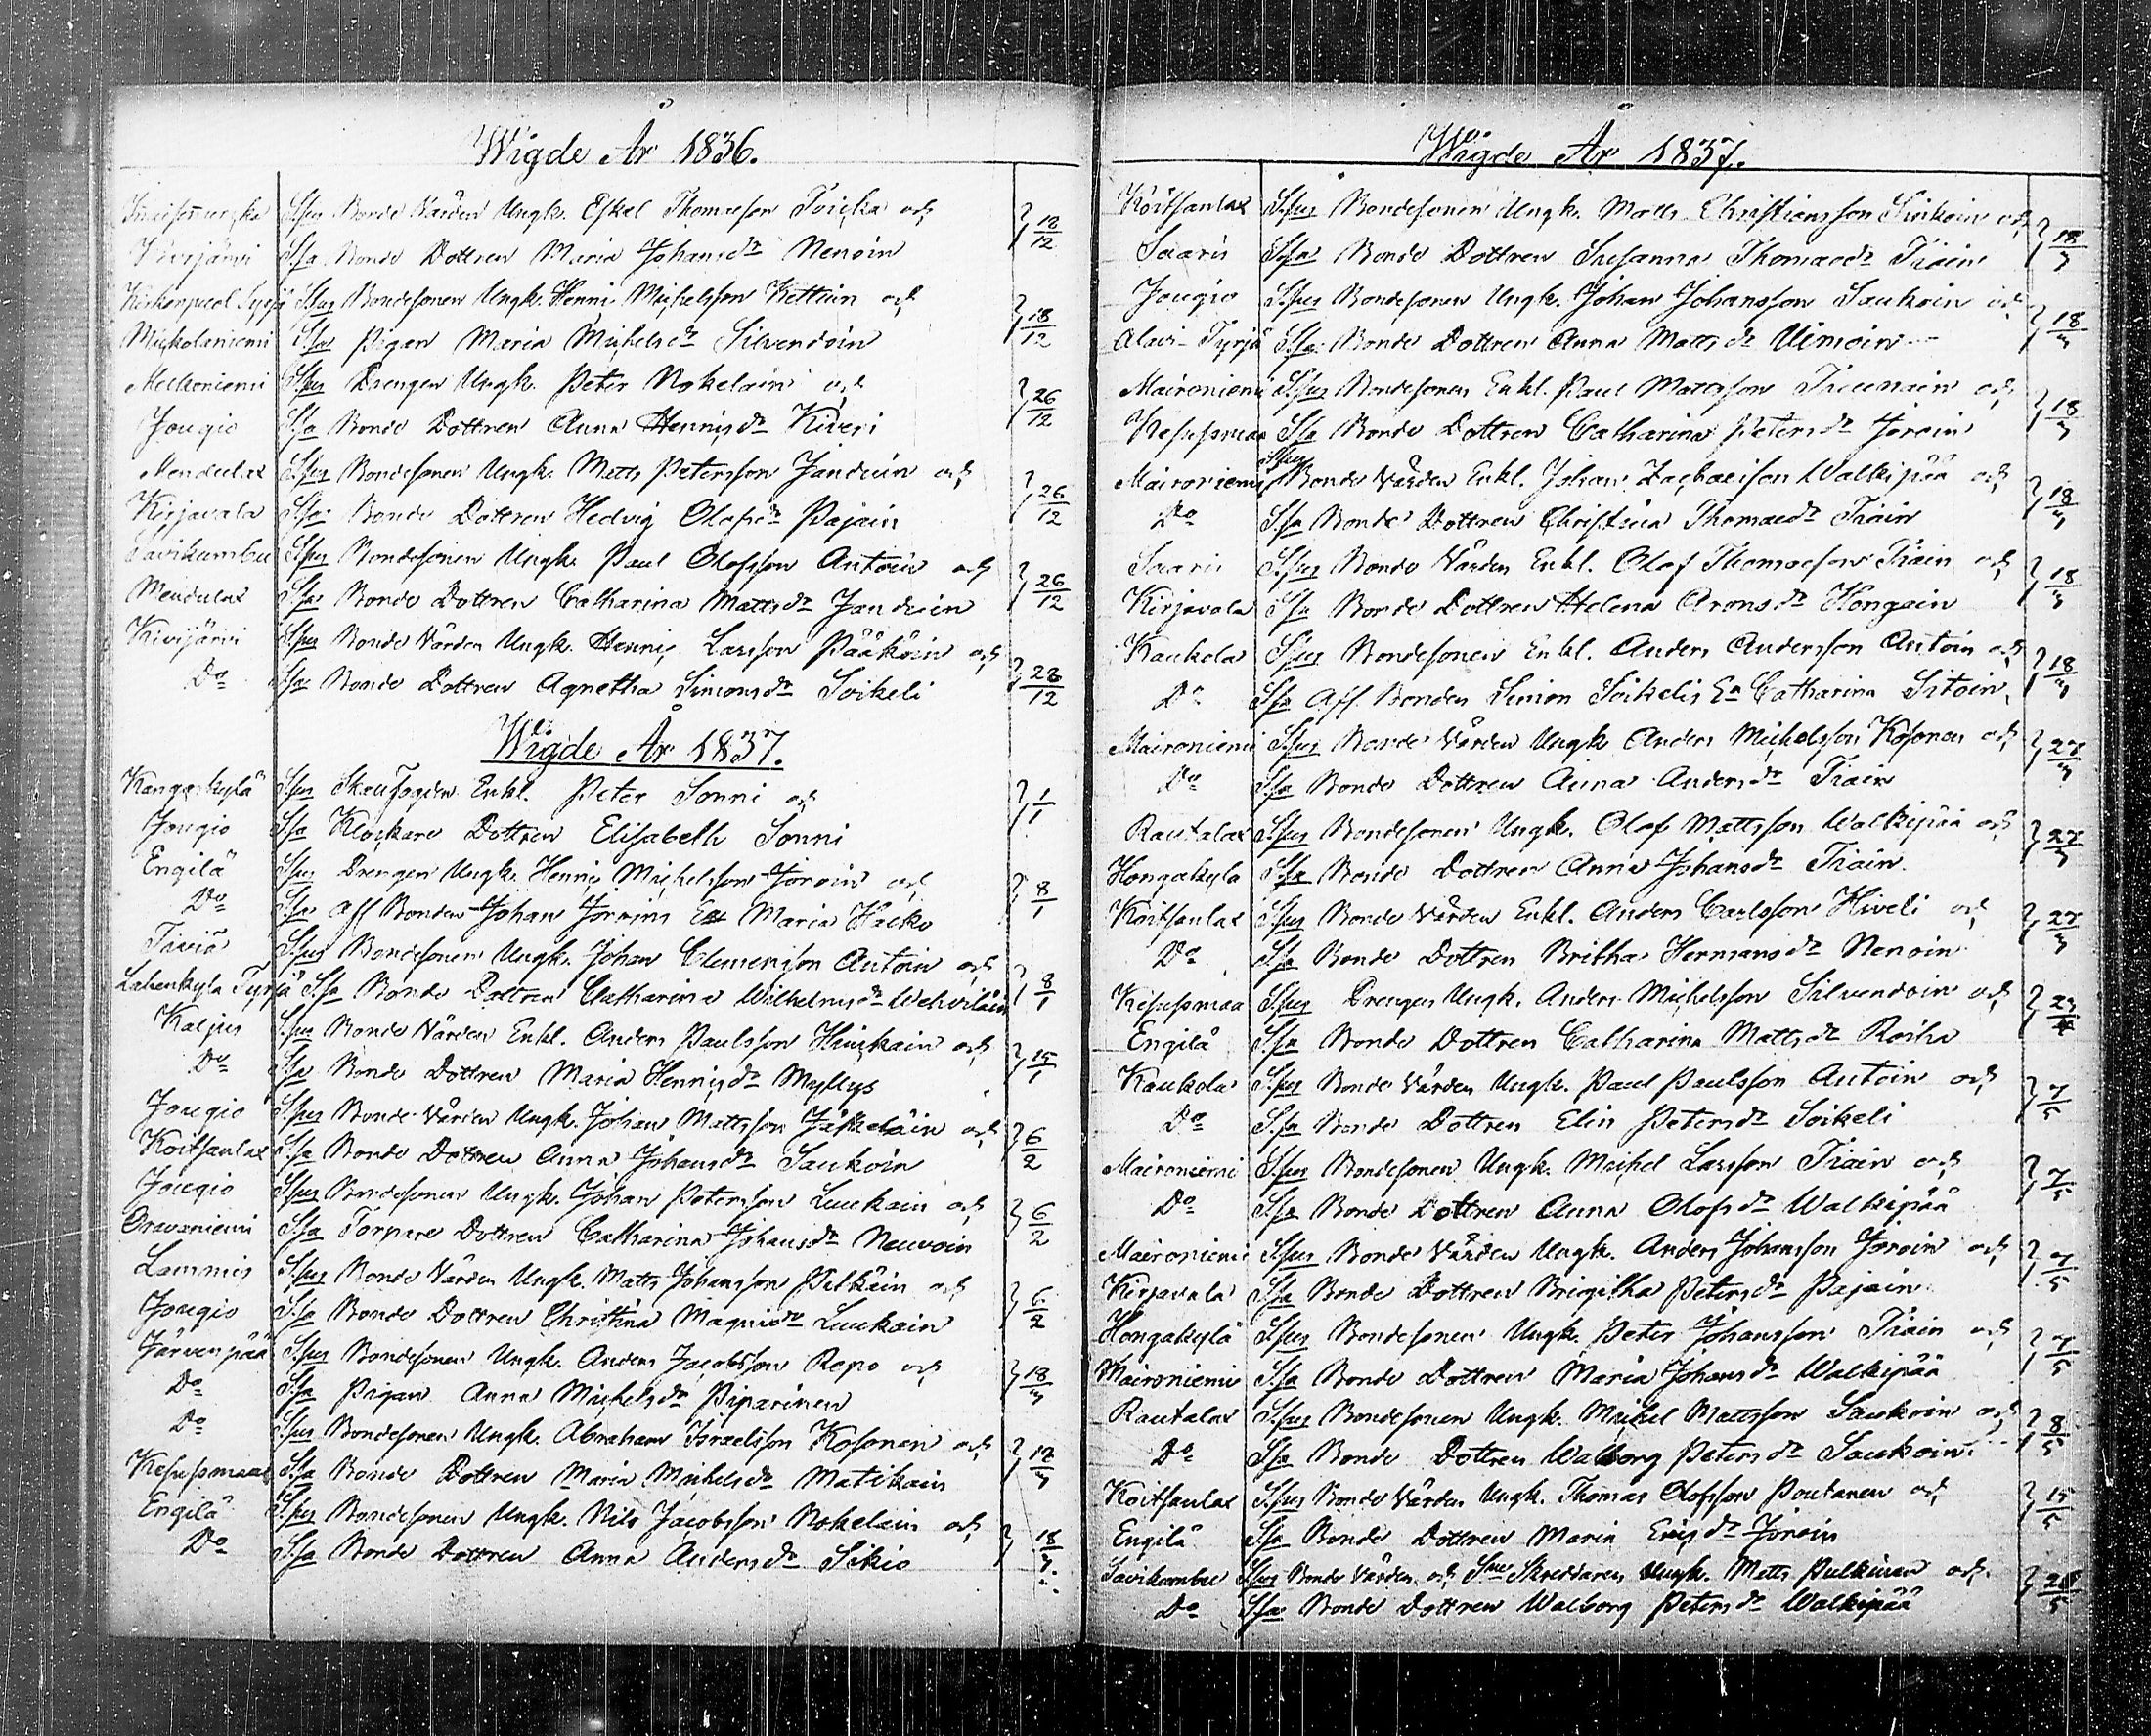 Wigde År 1836.
S:sus Bonde Vården Ungk. Eskel Thomasson Toicka och
Kivijärvi S:sa Bonde Dottren Maria Johansdr Nenoin } 18/12
S:sus Bondesonen Ungk. Henric Michelsson Kettuin och
Mickolaniemi S:sa Pigan Maria Michelsdr Silvendoin } 18/12
Melkoniemi S:sus Drengen Ungk. Peter Nokelain och
Jougio S:sa Bonde Dottren Anna Henricsdr Kiveri } 26/12
Mendulax S:sus Bondesonen Ungk. Matts Petersson Janduin och
Kirjavala S:sa Bonde Dottren Hedvig Olofsdr Pajain } 26/12
Savikumbu S:sus Bondesonen Ungk. Paul Olofsson Antoin och
Mendulax S:sa Bonde Dottren Catharina Mattsdr Janduin } 26/12
Kivijärvi S:sus Bonde Vården Ungk. Henric Larsson Pääköin och
Do S:sa Bonde Dottren Agnetha Simonsdr Soikeli } 28/12
Wigde År 1837.
Kangaskylä S:sus Skoufogden Enkl. Peter Sonni och
Jougio S:sa Klockare Dottren Elisabeth Sonni } 1/1
Engilä S:sus Drengen Ungk. Henric Michelsson Joroin och
Do S:sa Aff Bonden Johan Joroins Ea Maria Hacko } 8/1
Tiviä S:sus Bondesonen Ungk. Johan Clemensson Antoin och
Lahenkyla Tyrjä S:sa Bonde Dottren Catharina Wilhelmsdr Wehviläin } 8/1
Kaljus S:sus Bonde Vården Enkl. Anders Paulsson Hinckain och
Do S:sa Bonde Dottren Maria Henricsdr Myllys } 15/1
Jougio S:sus Bonde Vården Ungk. Johan Mattsson Jäskeläin och
Koitsanlax S:sa Bonde Dottren Anna Johansdr Saukoin } 6/2
Jougio S:sus Bondesonen Ungk. Johan Petersson Luukain och
Oravaniemi S:sa Torpare Dottren Catharina Johansdr Neuvoin } 6/2
Lammis S:sus Bonde Vården Ungk. Matts Johansson Pulkäin och
Jougio S:sa Bonde Dottren Christina Magnisdr Luukain } 6/2
Järvenpää S:sus Bondesonen Ungk. Anders Jacobsson Repo och
Do S:sa Pigan Anna Michelsdr Piparinen } 18/3
Do S:sus Bondesonen Ungk. Abraham Israelsson Kosonen och
Kesusmaa S:sa Bonde Dottren Maria Michelsdr Matikain } 18/3
Engilä S:sus Bondesonen Ungk. Nils Jacobsson Nokelain och
Do S:sa Bonde Dottren Anna Andersdr Sikio } 18/3
Wigde År 1837.
Koitsanlax S:sus Bondesonen Ungk. Matts Christiansson Sinkoin och
Saaris S:sa Bonde Dottren Susanna Thomasdr Tiain } 18/3
Jougio S:sus Bondesonen Ungk. Johan Johansson Saukoin och
Alavi-Tyrjä S:sa Bonde Dottren Anna Mattsdr Uimoin } 18/3
Maironiemi S:sus Bondesonen Enkl. Paul Mattsson Tieunain och
Kesusmaa S:sa Bonde Dottren Catharina Petersdr Joroin } 18/3
Maironiemi S:sus Bonde Vården Enkl. Johan Zachaeison Walkipää och
Do S:sa Bonde Dottren Christina Thomasdr Tiain } 18/3
Saaris S:sus Bonde Vården Enkl. Olof Thomasson Tiain och
Kirjavala S:sa Bonde Dottren Helena Aronsdr Hongain } 18/3
Kaukola S:sus Bondesonen Enkl. Anders Andersson Antoin och
Do S:sa Aff. Bonden Simon Soikelis Ea Catharina Sitoin } 18/3
Maironiemi S:sus Bonde Vården Ungk Anders Michelsson Kosonen och
Do S:sa Bonde Dottren Anna Andersdr Tiain } 27/3
Rautalax S:sus Bondesonen Ungk. Olof Mattsson Walkipää och
Hongakyla S:sa Bonde Dottren Anna Johansdr Tiain } 27/3
Koitsanlax S:sus Bonde Vården Enkl. Anders Carlsson Hiveli och
Do S:sa Bonde Dottren Britha Hermansdr Nenoin } 27/3
Kesusmaa S:sus Drengen Ungk. Anders Michelsson Silvendoin och
Engilä S:sa Bonde Dottren Catharina Mattsdr Roiha
Kaukola S:sus Bonde Vården Ungk. Paul Paulsson Antoin och
Do S:sa Bonde Dottren Elin Petersdr Soikeli } 7/5
Maironiemi S:sus Bondesonen Ungk. Michel Larsson Tiain och
Do S:sa Bonde Dottren Anna Olofsdr Walkipää } 7/5
Maironiemi S:sus Bonde Vården Ungk. Anders Johansson Joroin och
Kirjavala S:sa Bonde Dottren Brigitha Petersdr Pajain } 7/5
Hongakylä S:sus Bondesonen Ungk. Peter Johansson Tiain och
Maironiemi S:sa Bonde Dottren Maria Johansdr Walkipää } 7/5
Rautalax S:sus Bondesonen Ungk. Michel Mattsson Saukoin och
Do S:sa Bonde Dottren Walborg Petersdr Saukoin } 8/5
Koitsanlax S:sus Bonde Vården Ungk. Thomas Olofsson Poutanen och
Engilä S:sa Bonde Dottren Maria Ericsdr Joroin } 15/5
Savikumbu S:sus Bonde Vården och Skreddaren Ungk. Matts Pulkinen och
Do S:sa Bonde Dottren Walborg Petersdr Walkipää